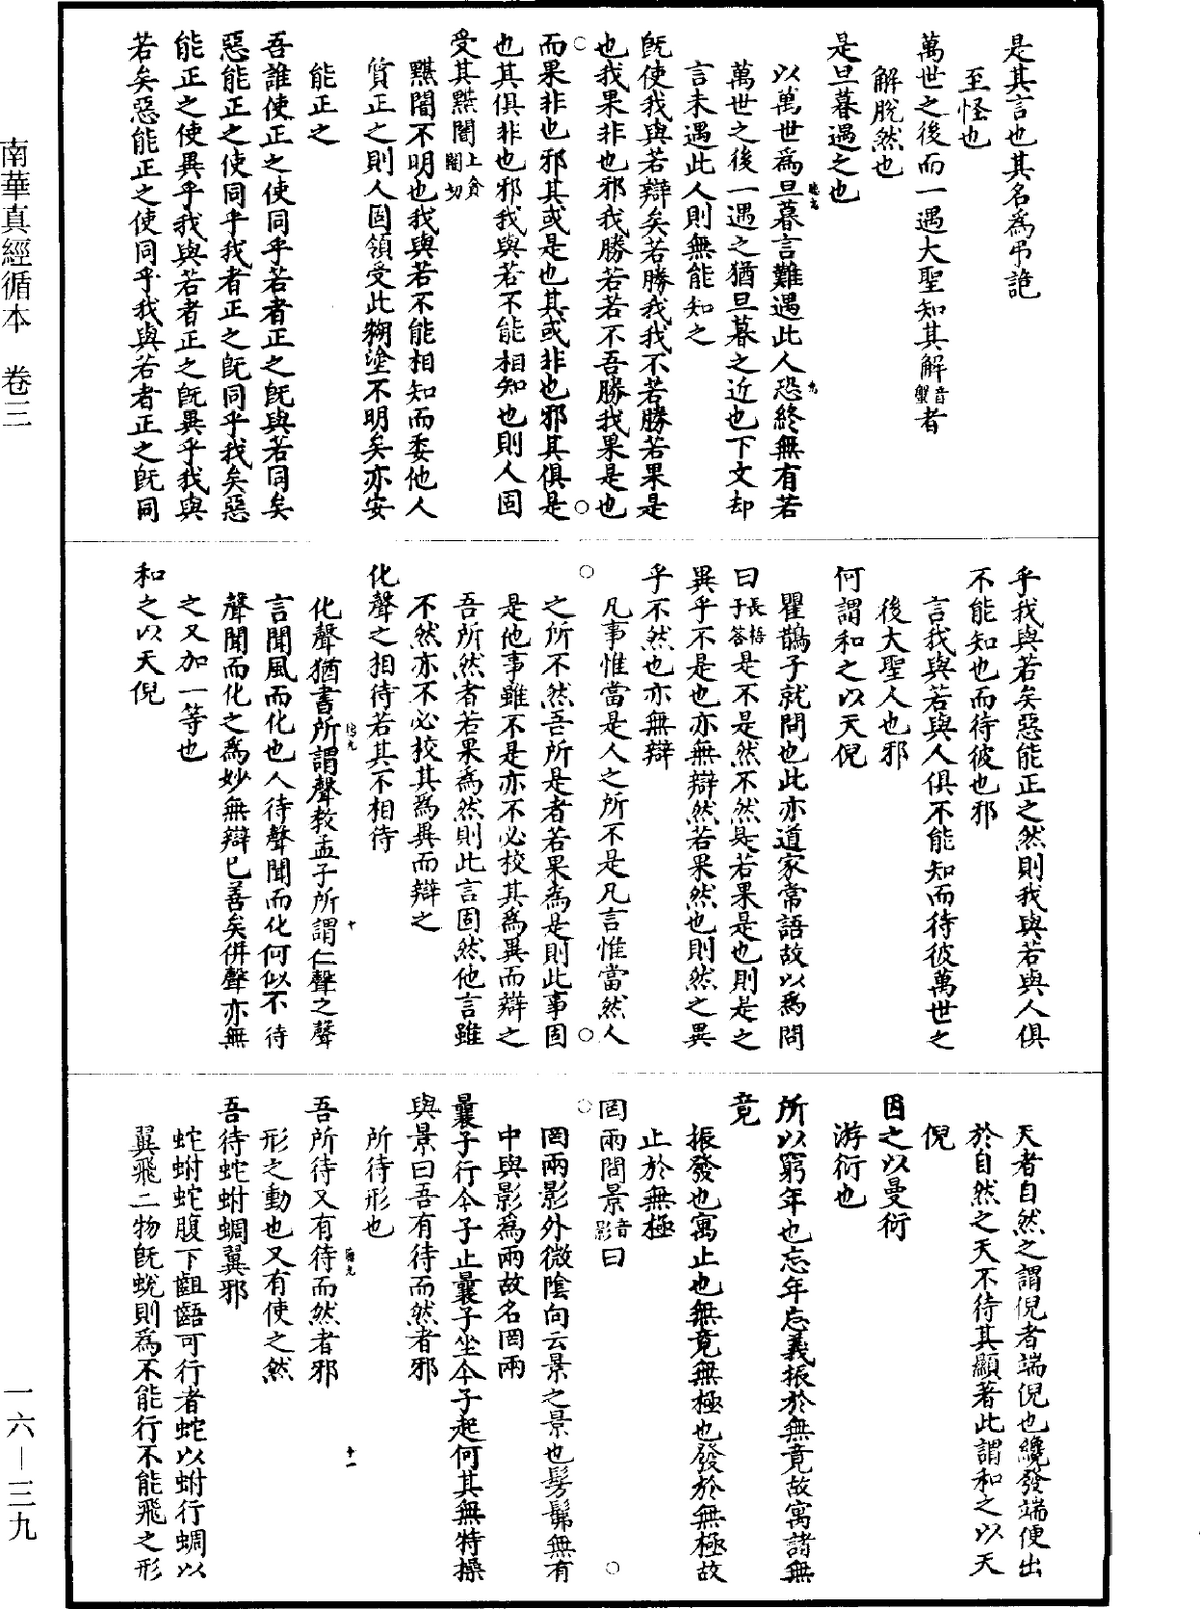 南華真經循本　卷三
一六—三九
是其言也其名爲弔詭
至怪也
萬世之後而一遇大聖知其解音蟹者
解脫然也
是旦暮遇之也
以萬世爲旦暮言難遇此人恐終無有若
萬世之後一遇之猶旦暮之近也下文却
言未遇此人則無能知之
旣使我與若辯矣若勝我我不若勝若果是
也我果非也邪我勝若若不吾勝我果是也
而果非也邪其或是也其或非也邪其俱是
也其俱非也邪我與若不能相知也則人固
受其黮闇上貪闇切
黮闇不明也我與若不能相知而委他人
質正之則人固領受此糊塗不明矣亦安
能正之
吾誰使正之使同乎若者正之旣與若同矣
惡能正之使同乎我者正之旣同乎我矣惡
能正之使異乎我與若者正之旣異乎我與
若矣惡能正之使同乎我與若者正之旣同
乎我與若矣惡能正之然則我與若與人俱
不能知也而待彼也邪
言我與若與人俱不能知而待彼萬世之
後大聖人也邪
何謂和之以天倪
瞿鵲子就問也此亦道家常語故以爲問
曰長梧子答是不是然不然是若果是也則是之
異乎不是也亦無辯然若果然也則然之異
乎不然也亦無辯
凡事惟當是人之所不是凡言惟當然人
之所不然吾所是者若果爲是則此事固
是他事雖不是亦不必校其爲異而辯之
吾所然者若果爲然則此言固然他言雖
不然亦不必校其爲異而辯之
化聲之相待若其不相待
化聲猶書所謂聲教孟子所謂仁聲之聲
言聞風而化也人待聲聞而化何似不待
聲聞而化之爲妙無辯已善矣併聲亦無
之又加一等也
和之以天倪
天者自然之謂倪者端倪也纔發端便出
於自然之天不待其顯著此謂和之以天
倪
因之以曼衍
游衍也
所以窮年也忘年忘義振於無竟故寓諸無
竟
振發也寓止也無竟無極也發於無極故
止於無極
罔兩問景音影曰
罔兩影外微陰向云景之景也髣髴無有
中與影爲兩故名罔兩
曩子行今子止曩子坐今子起何其無特操
與景曰吾有待而然者邪
所待形也
吾所待又有待而然者邪
形之動也又有使之然
吾待蛇蚹蜩翼邪
蛇蚹蛇腹下齟齬可行者蛇以蚹行蜩以
翼飛二物旣蛻則爲不能行不能飛之形